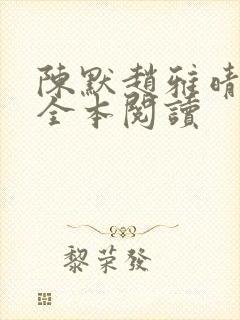 陳默趙雅晴
全本閱讀
黎荣發